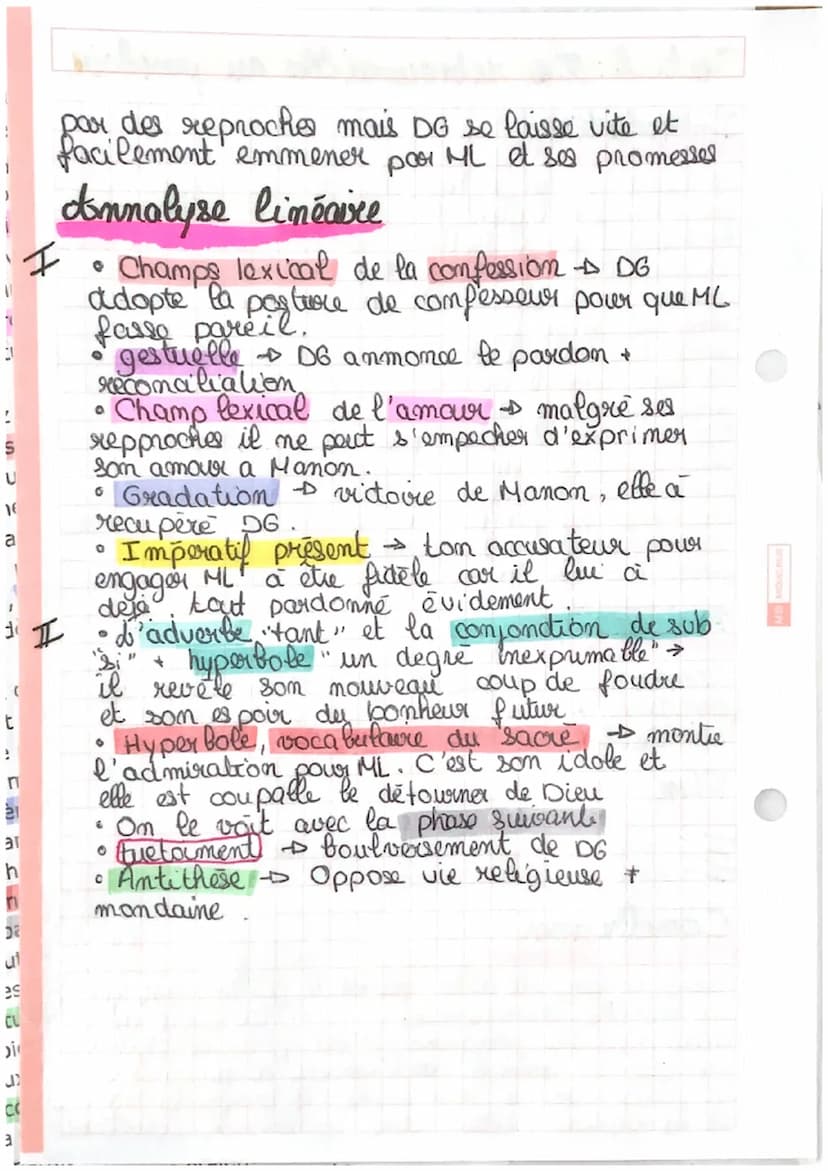 par des reproches mais DG se laisse vite et
facilement emmener par ML et ses promesses
Annalyse linéaire
I
• Champs lexical de la confession → DG
adopte la posture de confesseur pour que ML
fasse pareil.
• gestuelle → DG annonce le pardon +
réconciliation
• Champ lexical de l'amour → malgré ses
repproches il ne peut s'empacher d'exprimer
son amour a Manon.
• Gradation → victoire de Manon, elle à
recupéré DG.
• Impératif présent → ton accusateur pour
engager ML à être fidèle car il lui à
déjà tout pardonné évidement.
II
• L'adverbe "tant" et la conjonction de sub
"si" + hyperbole "un degré inexprimable" →
il revèle son nouveau coup de foudre
et son espoir du bonheur futur
• Hyperbole, vocabulaire du sacré → montre
l'admiration pour ML. C'est son idole et
elle est coupable le détourner de Dieu
• On le voit avec la phase suivante
• tuetoiment → boulversement de DG
• Antithèse → Oppose vie religieuse +
mondaine.